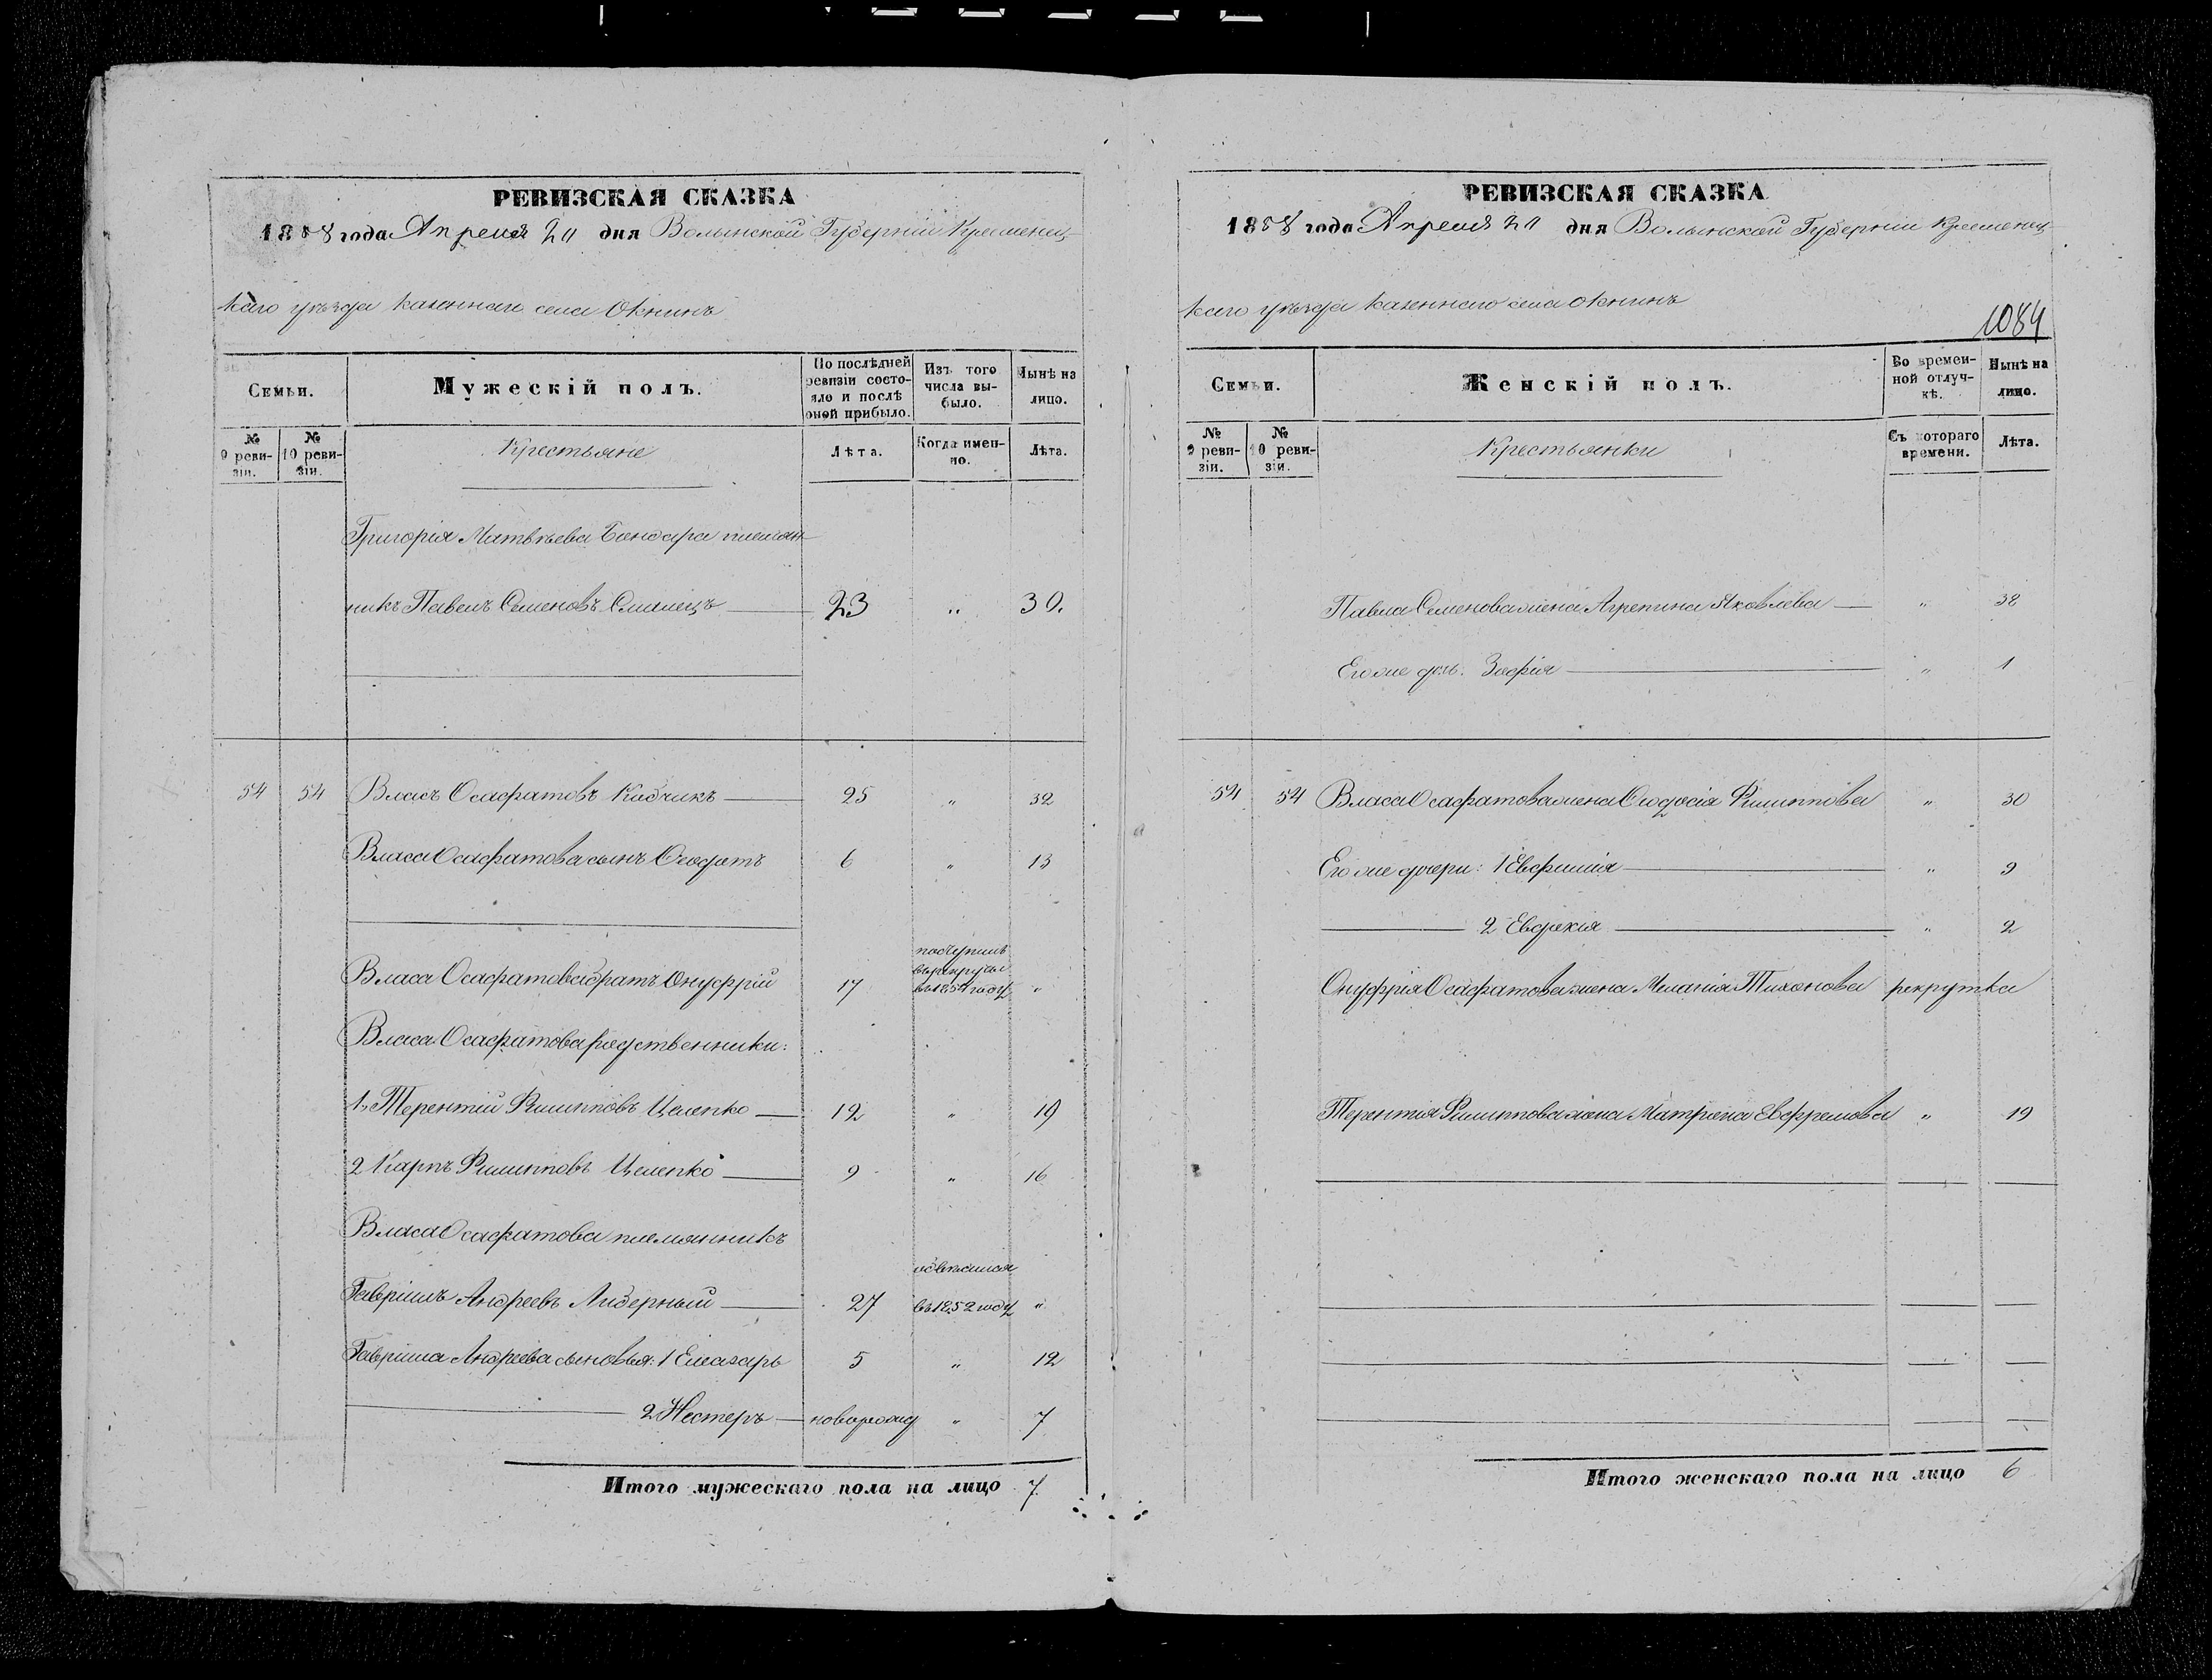 РЕВИЗСКАЯ СКАЗКА
1858 года Апреля 20 дня Волынской Губерніи Кременец-
каго уѣзда казеннаго села Окнинъ
Семьи.
Мужескій полъ.
По послѣдней ревизіи состо-яло и послѣ оной прибыло.
Изъ того числа вы-было.
Нынѣ на лицо.
№ 9 реви-зіи.
№ 10 реви-зіи.
Крестьяне
Лѣта.
Когда имен-но.
Лѣта.
Григорія Матвѣева Бондара племян-
никъ Павелъ Семеновъ 23 „ 30.
54 54 Власъ Осафатовъ Кобчикъ 25 „ 32
Власа Осафатова сынъ Феодотъ 6 „ 13
Власа Осафатова братъ Онуфрій 17 поступилъ въ рекруты въ 1854 году „
Власа Осафатова родственники:
1. Терентій Филипповъ Целепко 12 „ 19
2 Карпъ Филипповъ Целепко 9 „ 16
Власа Осафатова племянникъ
Гавріилъ Андреевъ Лидерный 27 въ 1852 году „
Гавріила Андреева сыновья: 1 Елеазаръ 5 „ 12
2 Нестеръ новорожд „ 7
Итого мужескаго пола на лицо 7.
РЕВИЗСКАЯ СКАЗКА
1858 года Апреля 20 дня Волынской Губерніи Кременец-
каго уѣзда казеннаго села Окнинъ
1084
Семьи.
Женскій полъ.
Во времен-ной отлуч-кѣ.
Нынѣ на лицо.
№ 9 реви-зіи.
№ 10 реви-зіи.
Крестьянки
Съ котораго времени.
Лѣта.
Павла Семенова жена Агрепина Яковлева „ 38
Его же дочь: Зофія „ 1
54 54 Власа Осафатова жена Феодосія Филиппова „ 30
Его же дочери: 1 Евфимія „ 9
2 Евдокія „ 2
Онуфрія Осафатова жена Меланія Тихонова рекрутка
Терентія Филиппова жена Матрона Евфремова „ 19
Итого женскаго пола на лицо 6